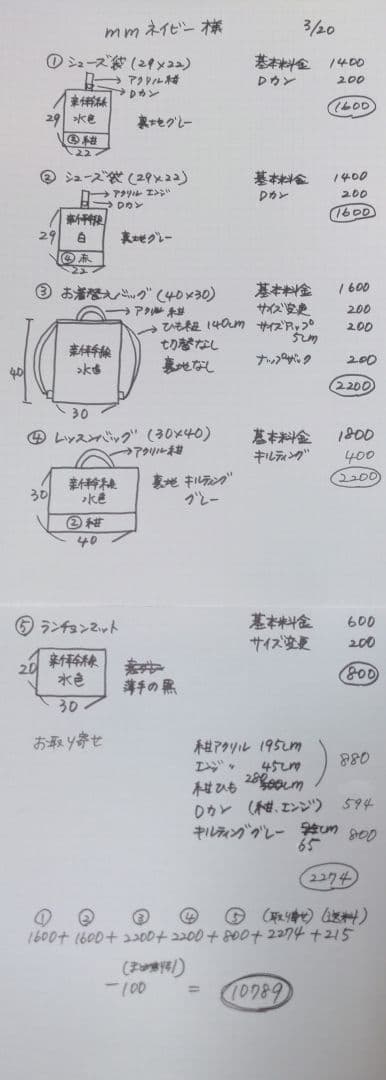 mmネイビー様 3/20
① シューズ袋 (29×22) 基本料金 1400
→アクリル紺 Dカン 200
→Dカン 1600
29 新幹線 水色 裏地グレー
③紺
22
② シューズ袋 (29×22) 基本料金 1400
→アクリルエンジ Dカン 200
→Dカン 1600
29 新幹線 白 裏地グレー
④赤
22
③ お着替えバッグ (40×30) 基本料金 1600
→アクリル紺 サイズ変更 200
→ひも紺 140cm サイズアップ 200
切替なし 5cm
40 新幹線 水色 裏地なし ナップザック 200
30 2200
④ レッスンバッグ (30×40) 基本料金 1800
→アクリル紺 キルティング 400
2200
30 新幹線 水色 裏地 キルティング
グレー
②紺
40
⑤ ランチョンマット 基本料金 600
サイズ変更 200
20 新幹線 水色 800
薄手の黒
30
お取り寄せ 紺アクリル 195cm
エンジ 〃 45cm 880
紺ひも 280cm
Dカン (紺、エンジ) 594
キルティンググレー 65cm 800
2274
① ② ③ ④ ⑤ (取り寄せ) (送料)
1600+1600+2200+2200+800+2274+215
(まとめ割)
-100 = 10789